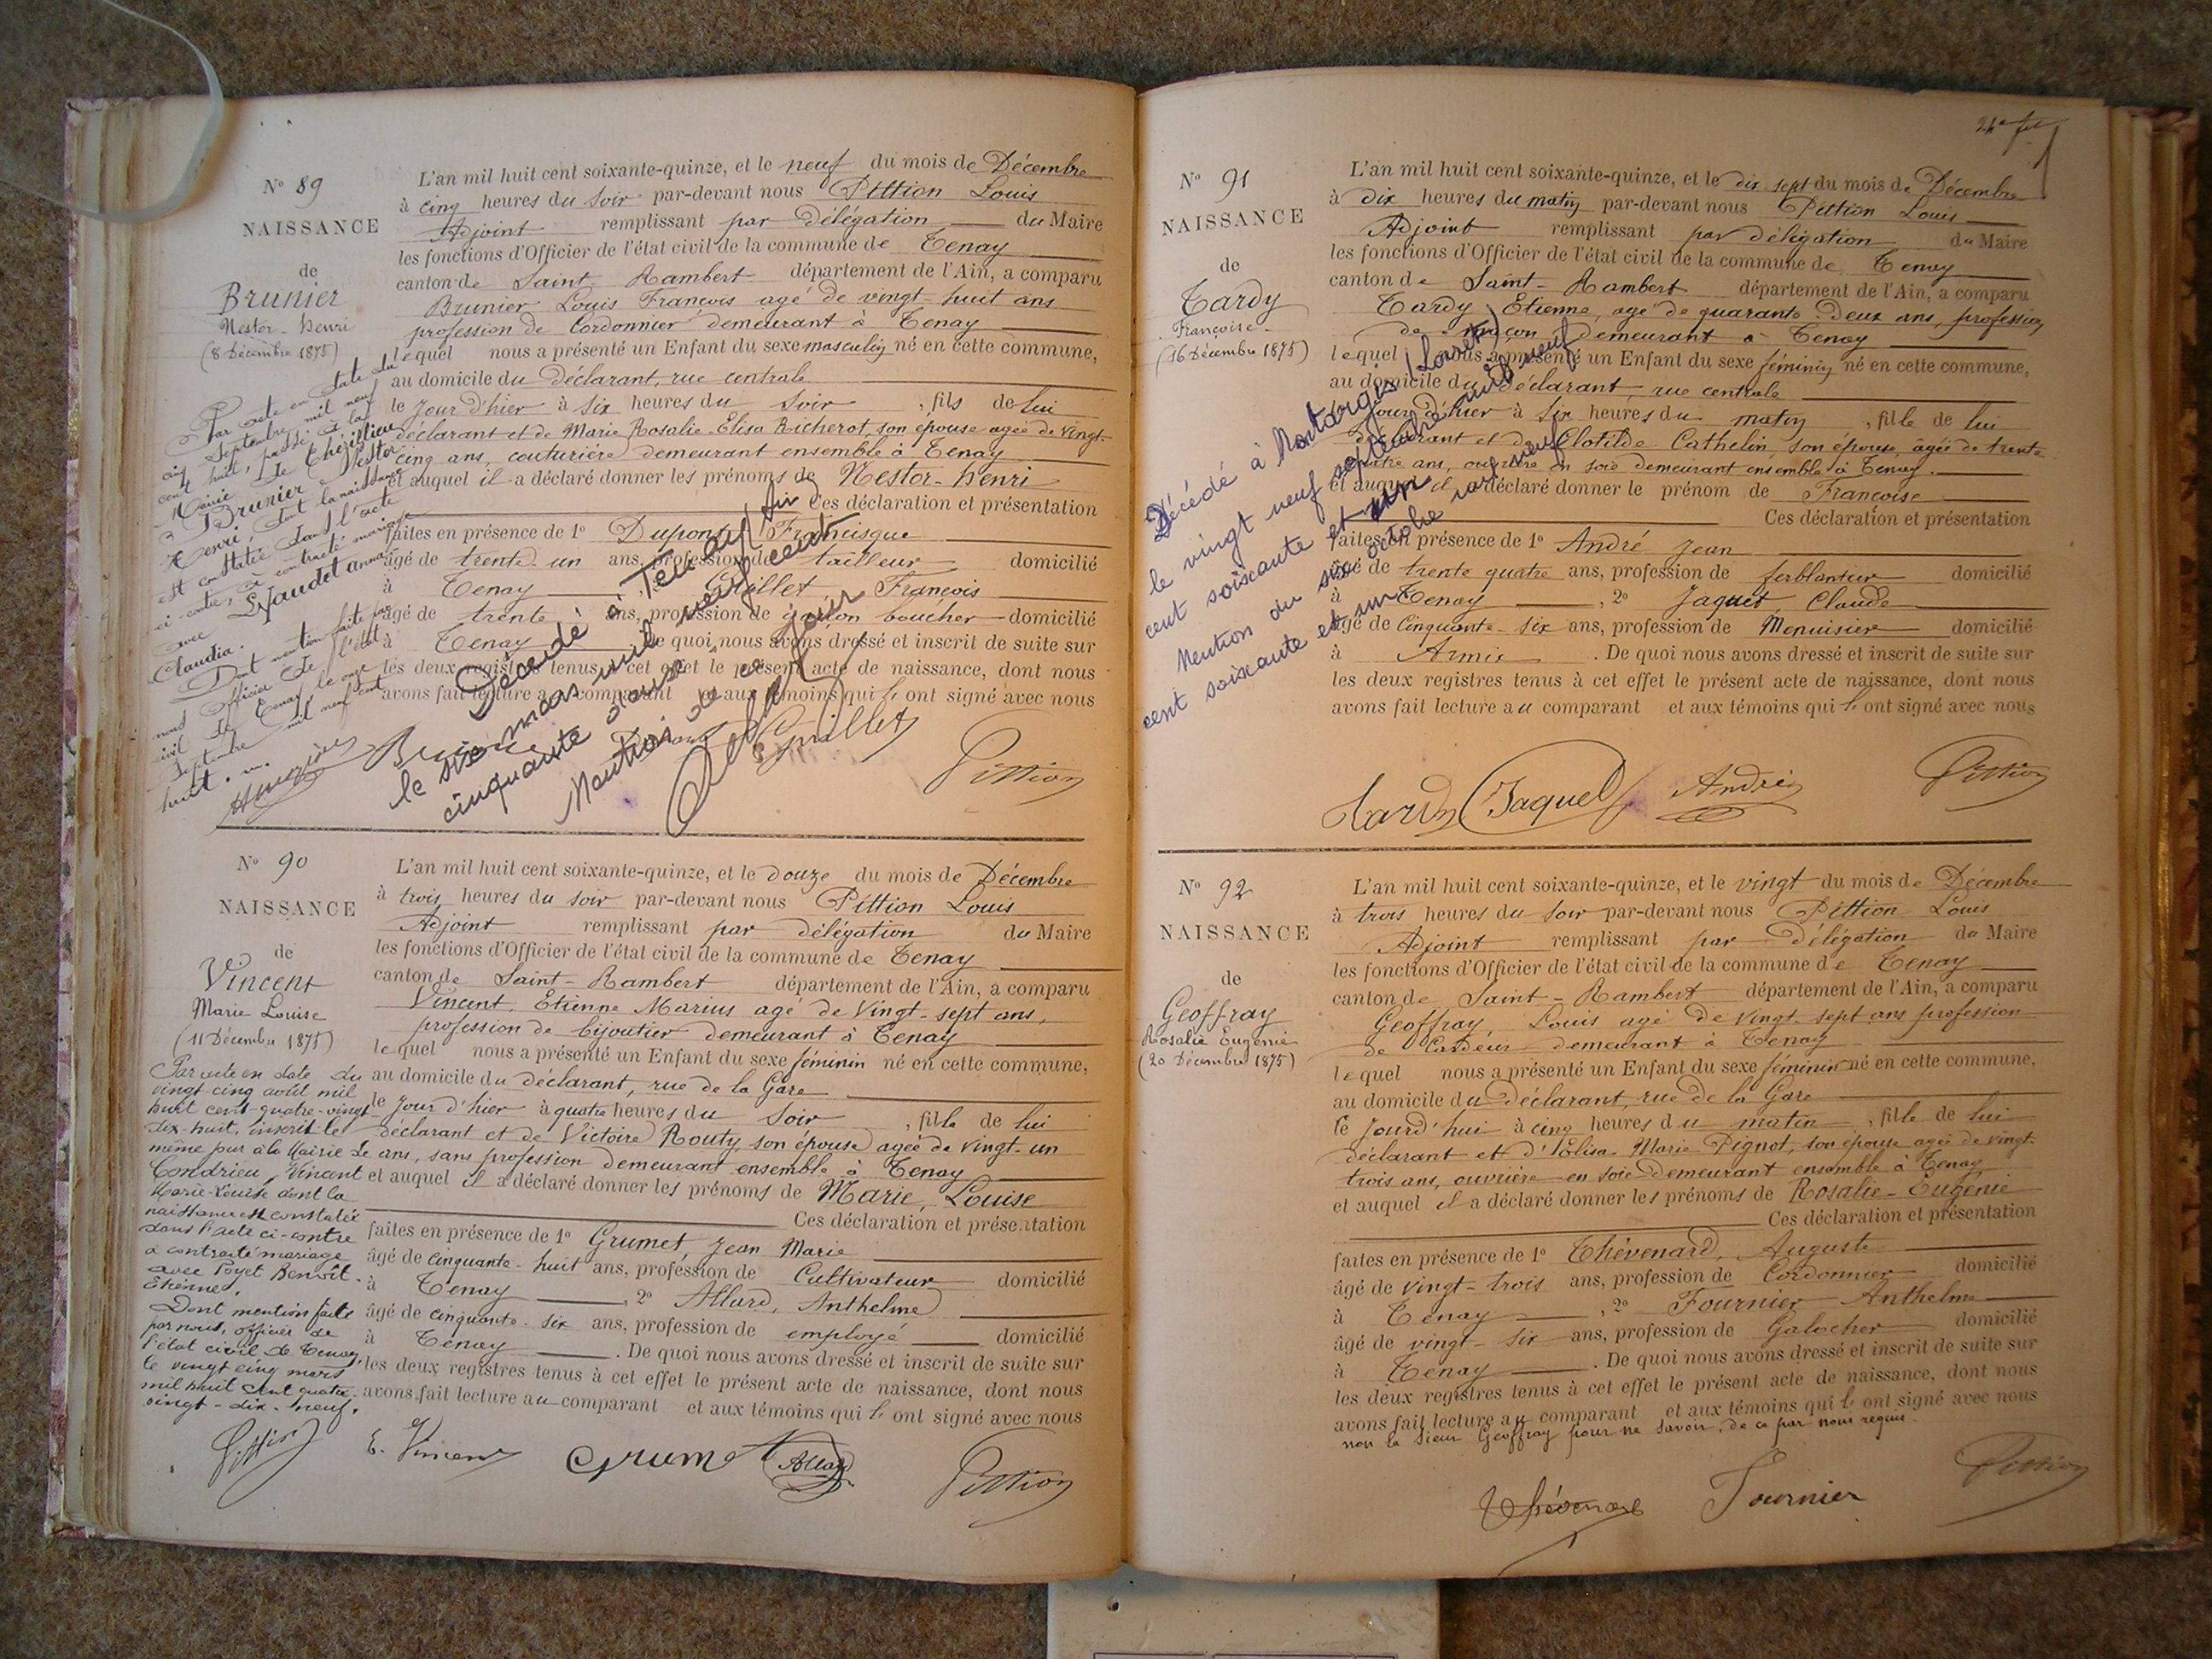 N° 89
NAISSANCE
de
Brunier
Nestor-henri
(8 Décembre 1875)
L'an mil huit cent soixante-quinze, et le neuf du mois de Décembre
à cinq heures du soir par-devant nous Pittion Louis
Adjoint remplissant par délégation du Maire
les fonctions d'Officier de l'état civil de la commune de Tenay
canton de Saint-Rambert département de l'Ain, a comparu
Brunier Louis François agé de vingt-huit ans
profession de Cordonnier demeurant à Tenay
lequel nous a présenté un Enfant du sexe masculin né en cette commune,
au domicile du déclarant, rue centrale
le jour d'hier à six heures du soir, fils de lui
déclarant et de Marie Rosalie Elisa Richerot son épouse agée de vingt-
cinq ans, couturière demeurant ensemble à Tenay
et auquel il a déclaré donner les prénoms de Nestor-henri
Ces déclaration et présentation
faites en présence de 1° Dupont Francisque
âgé de trente un ans, profession de tailleur domicilié
à Tenay Grillet, François
âgé de trente ans, profession de garçon boucher domicilié
à Tenay De quoi nous avons dressé et inscrit de suite sur
les deux registres tenus à cet effet le présent acte de naissance, dont nous
avons fait lecture au comparant et aux témoins qui l' ont signé avec nous
Par acte en date du
cinq Septembre mil neuf
cent huit, passé à la
Mairie de
Brunier Nestor
Henri, dont la naissance
est constatée dans l'acte
ci contre, a contracté mariage
avec
Claudia.
Dont mention faite par
nous officier de l'état
civil de Tenay, le onze
Septembre mil neuf cent
huit.
Décédé à Tenay Ain
le six mars mil neuf cent
cinquante douze
Mention de ce jour
Grillet
Pittion
N° 90
NAISSANCE
de
Vincent
Marie Louise
(11 Décembre 1875)
L'an mil huit cent soixante-quinze, et le douze du mois de Décembre
à trois heures du soir par-devant nous Pittion Louis
Adjoint remplissant par délégation du Maire
les fonctions d'Officier de l'état civil de la commune de Tenay
canton de Saint-Rambert département de l'Ain, a comparu
Vincent, Etienne Marius agé de vingt-sept ans,
profession de bijoutier demeurant à Tenay
lequel nous a présenté un Enfant du sexe féminin né en cette commune,
au domicile du déclarant, rue de la Gare
le jour d'hier à quatre heures du soir, fille de lui
déclarant et de Victoire Routy, son épouse agée de vingt-un
ans, sans profession demeurant ensemble à Tenay
et auquel il a déclaré donner les prénoms de Marie, Louise
Ces déclaration et présentation
faites en présence de 1° Grumet, Jean Marie
âgé de cinquante-huit ans, profession de Cultivateur domicilié
à Tenay, 2° Allard, Anthelme
âgé de cinquante-six ans, profession de employé domicilié
à Tenay. De quoi nous avons dressé et inscrit de suite sur
les deux registres tenus à cet effet le présent acte de naissance, dont nous
avons fait lecture au comparant et aux témoins qui l' ont signé avec nous
Par acte en date du
vingt-cinq août mil
huit cent quatre-vingt
dix-huit, inscrit le
même jour à la Mairie de
Condrieu, Vincent
Marie-Louise dont la
naissance est constatée
dans l'acte ci-contre
a contracté mariage
avec Poyet Benoît-
Etienne.
Dont mention faite
par nous, officier de
l'état civil de Tenay,
le vingt cinq mars
mil huit cent quatre-
vingt-dix-neuf.
Pittion
E. Vincent
Grumet
Allard
Pittion
N° 91
NAISSANCE
de
Tardy
Françoise
(16 Décembre 1875)
L'an mil huit cent soixante-quinze, et le dix sept du mois de Décembre
à dix heures du matin par-devant nous Pittion Louis
Adjoint remplissant par délégation du Maire
les fonctions d'Officier de l'état civil de la commune de Tenay
canton de Saint-Rambert département de l'Ain, a comparu
Tardy, Etienne, agé de quarante-deux ans, profession
de maçon demeurant à Tenay
lequel nous a présenté un Enfant du sexe féminin né en cette commune,
au domicile du déclarant, rue centrale
jour d'hier à six heures du matin, fille de lui
déclarant et de Clotilde Cathelin, son épouse, agée de trente
quatre ans, ouvrière en soie demeurant ensemble à Tenay.
et auquel il a déclaré donner le prénom de Françoise
Ces déclaration et présentation
faites en présence de 1° André Jean
âgé de trente quatre ans, profession de ferblantier domicilié
à Tenay, 2° Jaquet, Claude
âgé de Cinquante-six ans, profession de Menuisier domicilié
à Armix. De quoi nous avons dressé et inscrit de suite sur
les deux registres tenus à cet effet le présent acte de naissance, dont nous
avons fait lecture au comparant et aux témoins qui l' ont signé avec nous
Décédé à Montargis (Loiret)
le vingt neuf septembre mil neuf
cent soixante et un
Mention du six octobre mil neuf
cent soixante et un
Tardy
Jaquet
André
Pittion
N° 92
NAISSANCE
de
Geoffray
Rosalie Eugénie
(20 Décembre 1875)
L'an mil huit cent soixante-quinze, et le vingt du mois de Décembre
à trois heures du soir par-devant nous Pittion Louis
Adjoint remplissant par délégation du Maire
les fonctions d'Officier de l'état civil de la commune de Tenay
canton de Saint-Rambert département de l'Ain, a comparu
Geoffray, Louis agé de vingt-sept ans profession
de Cardeur demeurant à Tenay
lequel nous a présenté un Enfant du sexe féminin né en cette commune,
au domicile du Déclarant, rue de la Gare
le jourd'hui à cinq heures du matin, fille de lui
déclarant et d'Elisa Marie Pignot, son épouse agée de vingt-
trois ans, ouvrière en soie demeurant ensemble à Tenay
et auquel il a déclaré donner les prénoms de Rosalie-Eugénie
Ces déclaration et présentation
faites en présence de 1° Thévenard, Auguste
âgé de vingt-trois ans, profession de Cordonnier domicilié
à Tenay, 2° Fournier Anthelme
âgé de vingt-six ans, profession de Galocher domicilié
à Tenay. De quoi nous avons dressé et inscrit de suite sur
les deux registres tenus à cet effet le présent acte de naissance, dont nous
avons fait lecture au comparant et aux témoins qui l' ont signé avec nous
non le sieur Geoffray pour ne savoir, de ce par nous requis.
Thévenard
Fournier
Pittion